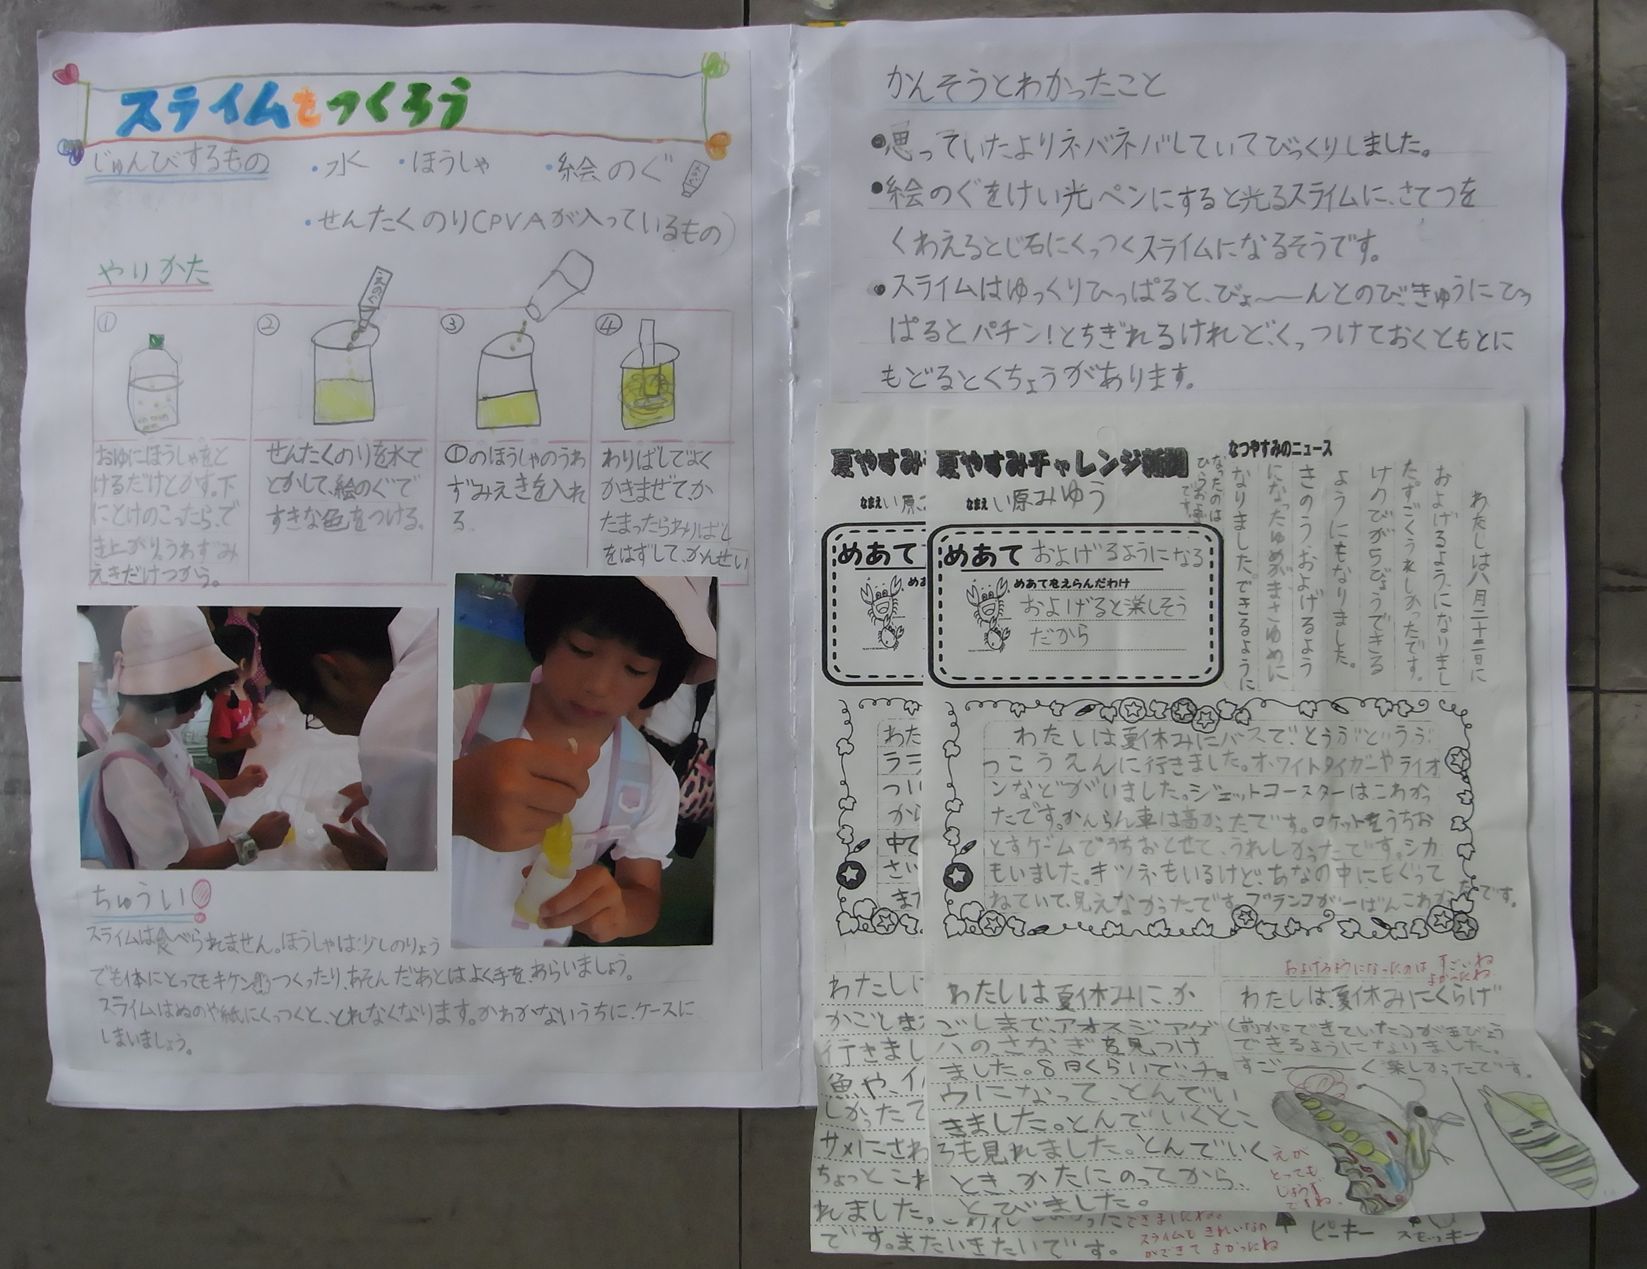 スライムをつくろう
じゅんびするもの ・水 ・ほうしゃ ・絵のぐ
・せんたくのり(PVAが入っているもの)
やりかた
①
おゆにほうしゃをと
けるだけとかす。下
にとけのこったら、で
き上がり。うわずみ
えきだけつかう。
②
せんたくのりを水で
とかして、絵のぐで
すきな色をつける。
③
①のほうしゃのうわ
ずみえきを入れ
る。
④
わりばしでよく
かきまぜて、か
たまったらわりばし
をはずして、かんせい
ちゅうい!
スライムは食べられません。ほうしゃは少しのりょう
でも体にとってもキケン つくったり、あそんだあとはよく手をあらいましょう。
スライムはぬのや紙にくっつくと、とれなくなります。かわかないうちに、ケースに
しまいましょう。
かんそうとわかったこと
●思っていたよりネバネバしていてびっくりしました。
●絵のぐをけい光ペンにすると光るスライムに、さてつを
くわえるとじ石にくっつくスライムになるそうです。
●スライムはゆっくりひっぱると、びょ〜ーんとのび、きゅうにひっ
ぱるとパチン!とちぎれるけれど、くっつけておくともとに
もどるとくちょうがあります。
夏やすみチャレンジ新聞
なまえ い原みゆう
めあて およげるようになる
めあてをえらんだわけ
およげると楽しそう
だから
なつやすみのニュース
わたしは八月二十二日に
およげるようになりまし
た。すごくうれしかったです。
けのびが5びょうできる
ようにもなりました。
きのうおよげるよう
になったゆめがまさゆめに
なりました。できるように
なったのは
わたしは夏休みにバスで、とうぶどうぶ
つこうえんに行きました。ホワイトタイガーやライオ
ンなどがいました。ジェットコースターはこわかっ
たです。かんらん車は高かったです。ロケットをうちお
とすゲームでうちおとせて、うれしかったです。シカ
もいました。キツネもいるけど、あなの中にもぐって
ねていて、見えなかったです。ブランコが一ばんこわかったです。
わたしは夏休みに、か
ごしまで、アオスジアゲ
ハのさなぎを見つけ
ました。8日くらいでチョ
ウになって、とんでい
きました。とんでいくとこ
ろも見れました。とんでいく
とき、かたにのってから、
とびました。
およげるようになったのは すごいね
よかったね
わたしは、夏休みにくらげ
(前からできていた)が5びょう
できるようになりました。
すごーーく楽しかったです。
えが
とっても
じょうず
ですね。
夏やすみ
なまえ い原
めあて
わたし
かごしま
行きまし
魚や、イ
しかったで
サメにさわ
ちょっとこわ
れました。
です。またいきたいです。
スライムも きれいなの
ができて よかったね
ピンキー
スモッキー